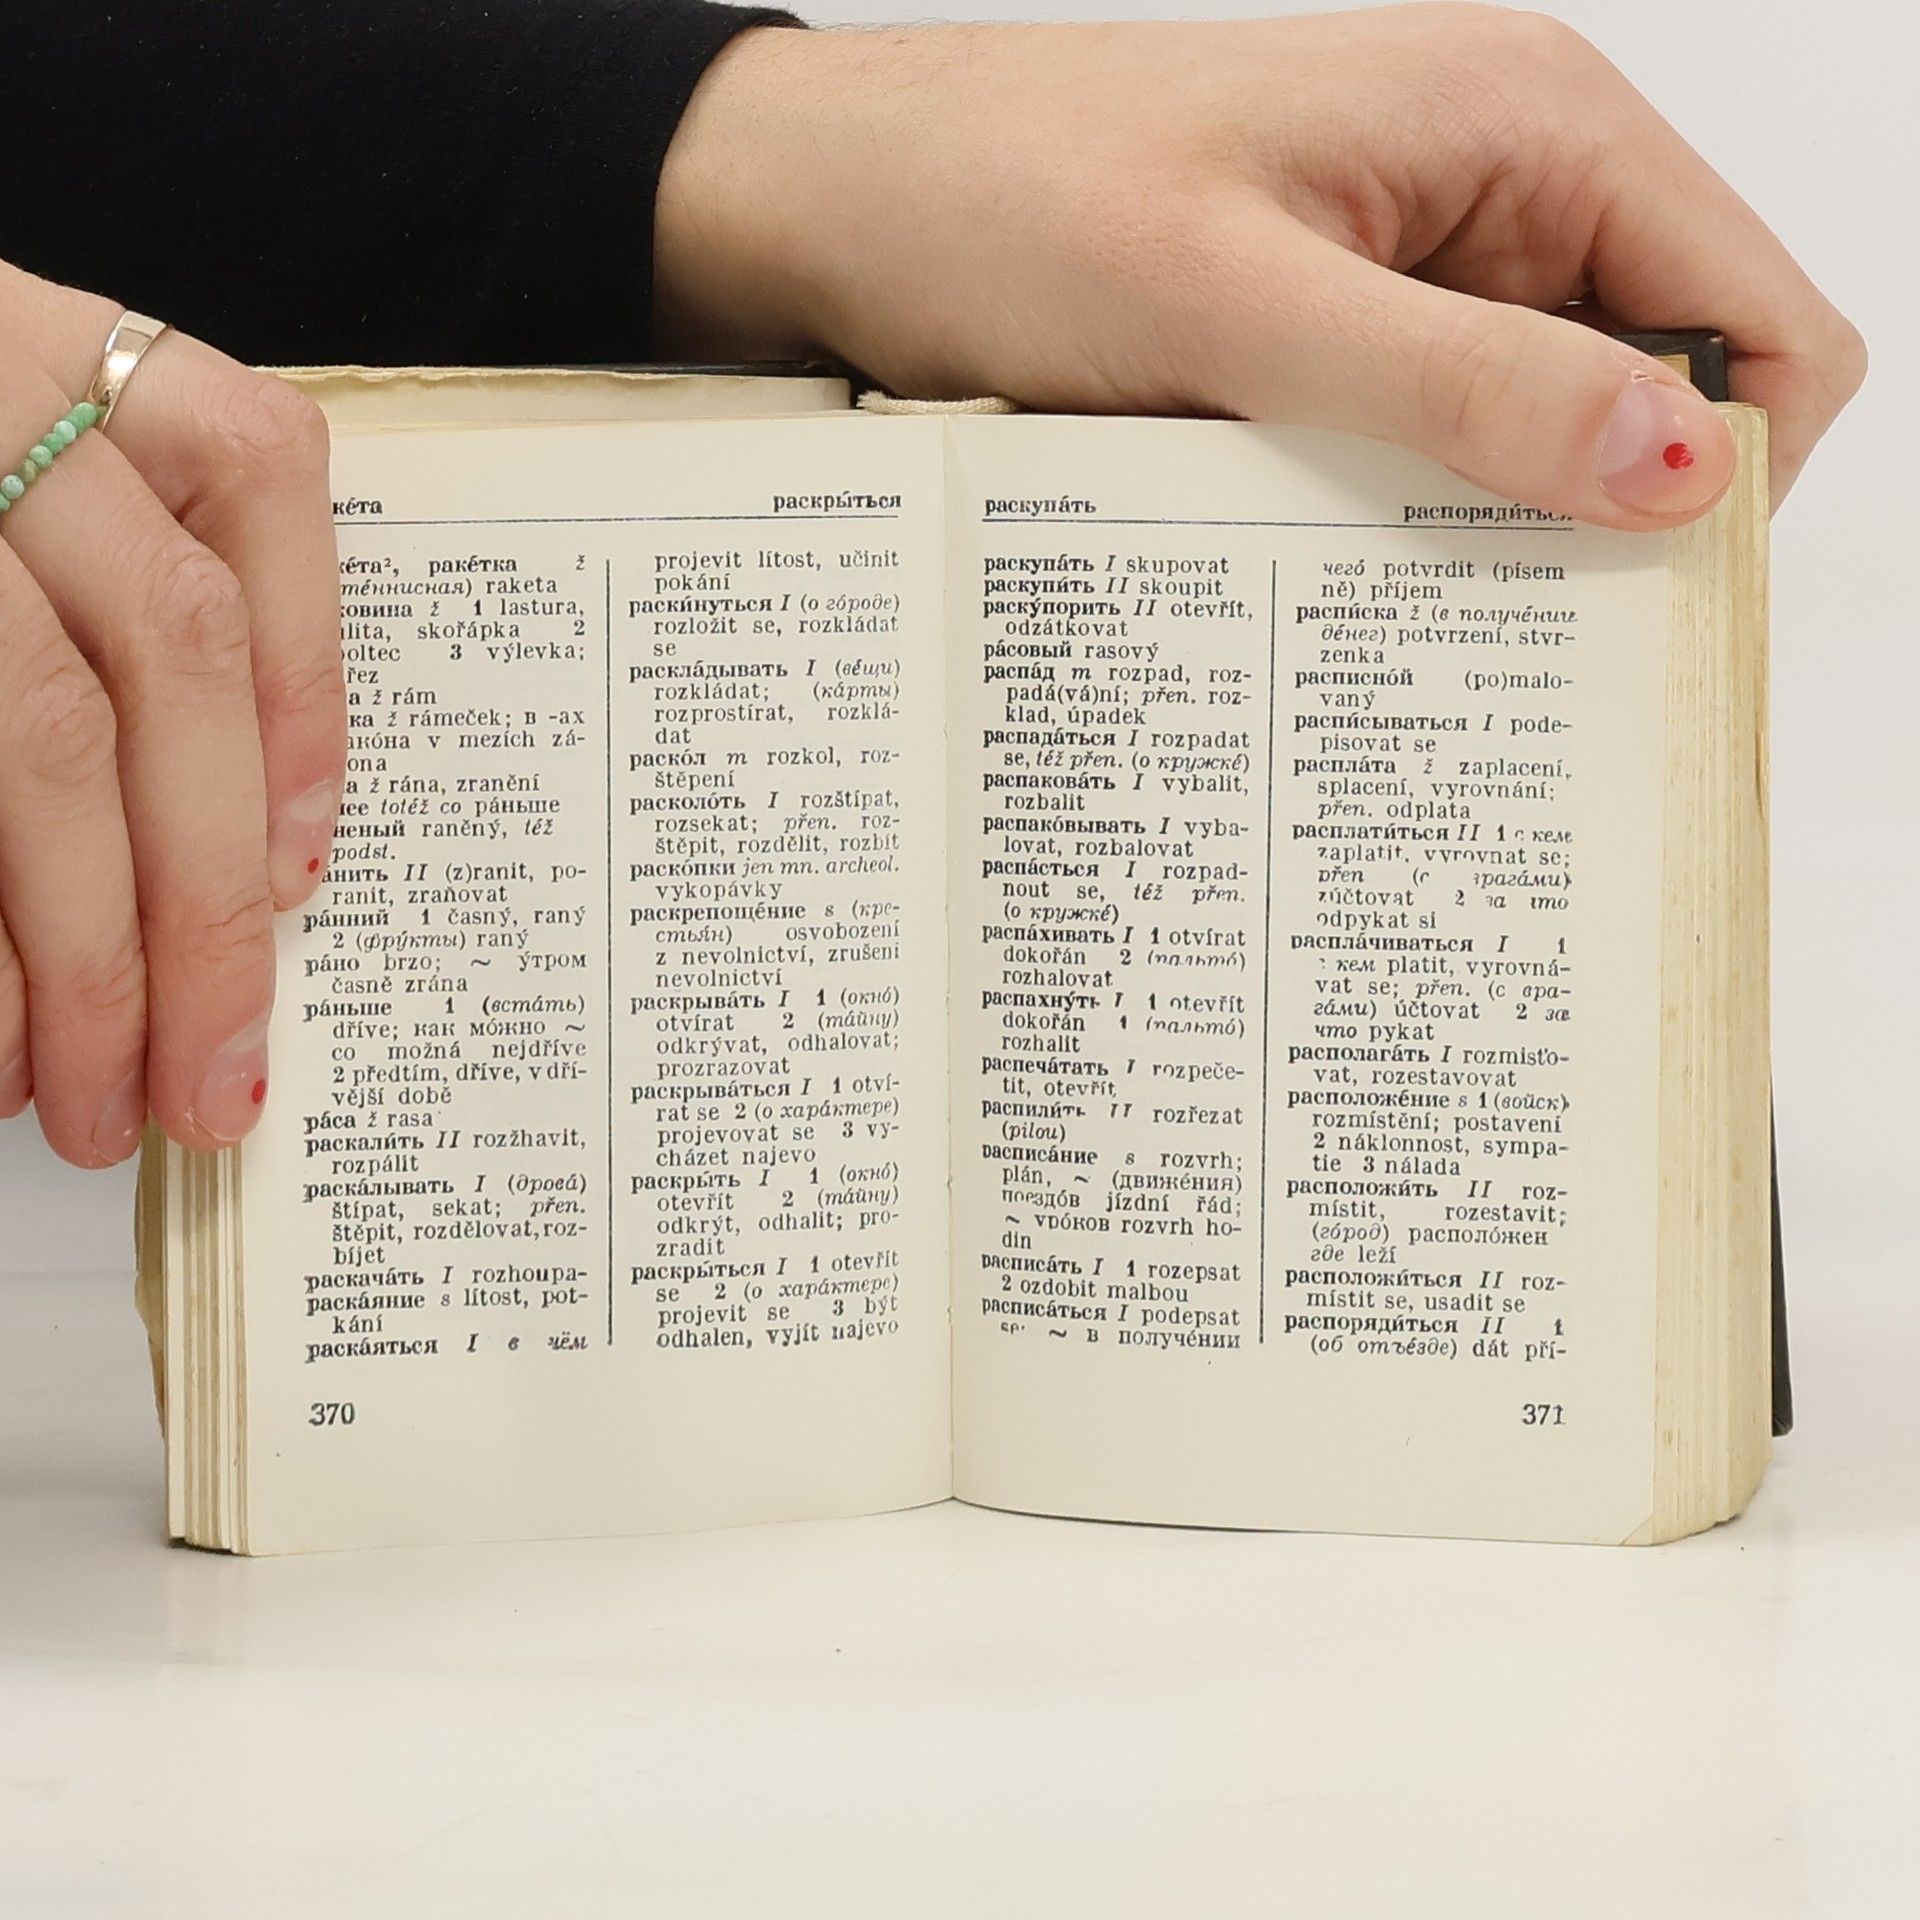 раскры́ться
ке́та², раке́тка ž
те́ннисная) raketa
ковина ž 1 lastura,
ulita, skořápka 2
boltec 3 výlevka;
řez
а ž rám
ка ž rámeček; в -ах
ако́на v mezích zá-
kona
а ž rána, zranění
нее totéž co ра́ньше
неный raněný, též
podst.
ра́нить II (z)ranit, po-
ranit, zraňovat
ра́нний 1 časný, raný
2 (фру́кты) raný
ра́но brzo; ~ у́тром
časně zrána
ра́ньше 1 (встáть)
dříve; как мо́жно ~
co možná nejdříve
2 předtím, dříve, v dří-
vější době
ра́са ž rasa
раскали́ть II rozžhavit,
rozpálit
раска́лывать I (дрова́)
štípat, sekat; přen.
štěpit, rozdělovat, roz-
bíjet
раскача́ть I rozhoupa-
раска́яние s lítost, pot-
kání
раска́яться I в чём
projevit lítost, učinit
pokání
раски́нуться I (о го́роде)
rozložit se, rozkládat
se
раскла́дывать I (ве́щи)
rozkládat; (ка́рты)
rozprostírat, rozklá-
dat
раско́л m rozkol, roz-
štěpení
расколо́ть I rozštípat,
rozsekat; přen. roz-
štěpit, rozdělit, rozbít
раско́пки jen mn. archeol.
vykopávky
раскрепоще́ние s (кре-
стья́н) osvobození
z nevolnictví, zrušení
nevolnictví
раскрыва́ть I 1 (окно́)
otvírat 2 (та́йну)
odkrývat, odhalovat;
prozrazovat
раскрыва́ться I 1 otví-
rat se 2 (о хара́ктере)
projevovat se 3 vy-
cházet najevo
раскры́ть I 1 (окно́)
otevřít 2 (та́йну)
odkrýt, odhalit; pro-
zradit
раскры́ться I 1 otevřít
se 2 (о хара́ктере)
projevit se 3 být
odhalen, vyjít najevo
370
раскупа́ть распоряди́ться
раскупа́ть I skupovat
раскупи́ть II skoupit
раску́порить II otevřít,
odzátkovat
ра́совый rasový
распа́д m rozpad, roz-
padá(vá)ní; přen. roz-
klad, úpadek
распада́ться I rozpadat
se, též přen. (о кружке́)
распакова́ть I vybalit,
rozbalit
распако́вывать I vyba-
lovat, rozbalovat
распа́сться I rozpad-
nout se, též přen.
(о кружке́)
распа́хивать I 1 otvírat
dokořán 2 (пальто́)
rozhalovat
распахну́ть I 1 otevřít
dokořán 1 (пальто́)
rozhalit
распеча́тать I rozpeče-
tit, otevřít
распили́ть II rozřezat
(pilou)
расписа́ние s rozvrh;
plán, ~ (движе́ния)
поездо́в jízdní řád;
~ уро́ков rozvrh ho-
din
расписа́ть I 1 rozepsat
2 ozdobit malbou
расписа́ться I podepsat
se; ~ в получе́нии
чего́ potvrdit (písem
ně) příjem
распи́ска ž (в получе́нии
де́нег) potvrzení, stvr-
zenka
расписно́й (po)malo-
vaný
распи́сываться I pode-
pisovat se
распла́та ž zaplacení,
splacení, vyrovnání;
přen. odplata
расплати́ться II 1 с кем
zaplatit, vyrovnat se;
přen (с врага́ми)
zúčtovat 2 за что
odpykat si
распла́чиваться I 1
с кем platit, vyrovná-
vat se; přen. (с вра-
га́ми) účtovat 2 за
что pykat
располага́ть I rozmisťo-
vat, rozestavovat
расположе́ние s 1 (войск)
rozmístění; postavení
2 náklonnost, sympa-
tie 3 nálada
расположи́ть II roz-
místit, rozestavit;
(го́род) располо́жен
где leží
расположи́ться II roz-
místit se, usadit se
распоряди́ться II 1
(об отъе́зде) dát pří-
371